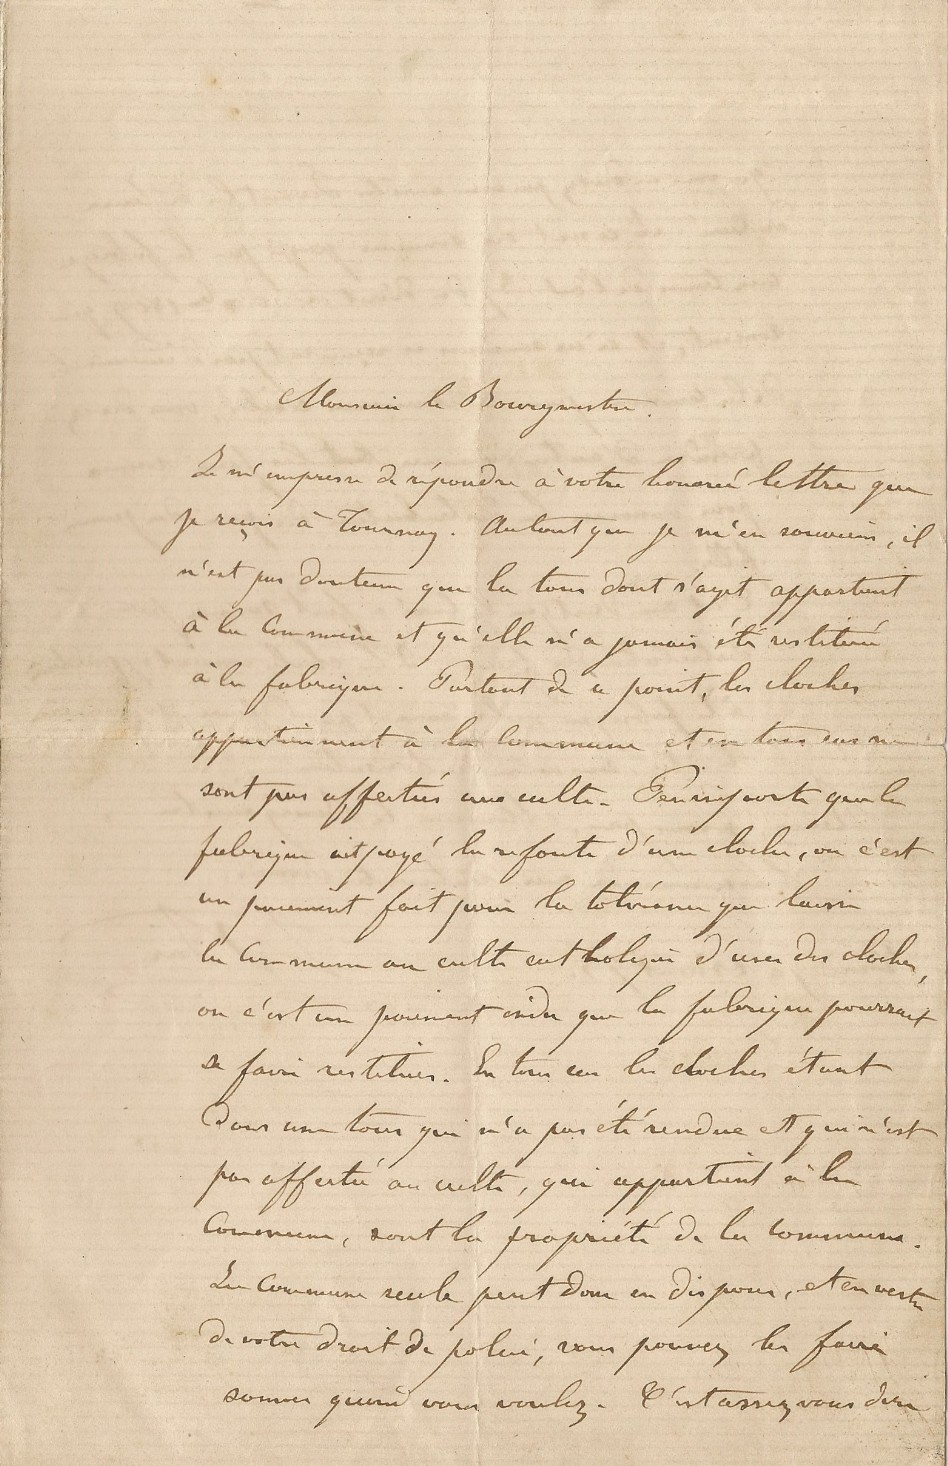 Monsieur le Bourgmestre.
Je m'empresse de répondre à votre honorée lettre que
je reçois à Tournay. Autant que je m'en souviens, il
n'est pas douteux que la tour dont s'agit appartient
à la Commune et qu'elle n'a jamais été restituée
à la fabrique. Partant de ce point, les cloches
appartiennent à la Commune et en tous cas ne
sont pas affectées au culte. Peu importe que la
fabrique ait payé la refonte d'une cloche, ou c'est
un paiement fait pour la tolérance que laisse
la Commune au culte catholique d'user des cloches,
ou c'est un paiement indu que la fabrique pourrait
se faire restituer. En tous cas les cloches étant
dans une tour qui n'a pas été rendue et qui n'est
pas affectée au culte, qui appartient à la
Commune, sont la propriété de la commune.
La Commune seule peut donc en disposer, et en vertu
de votre droit de police, vous pouvez les faire
sonner quand vous voulez. C'est assez vous dire